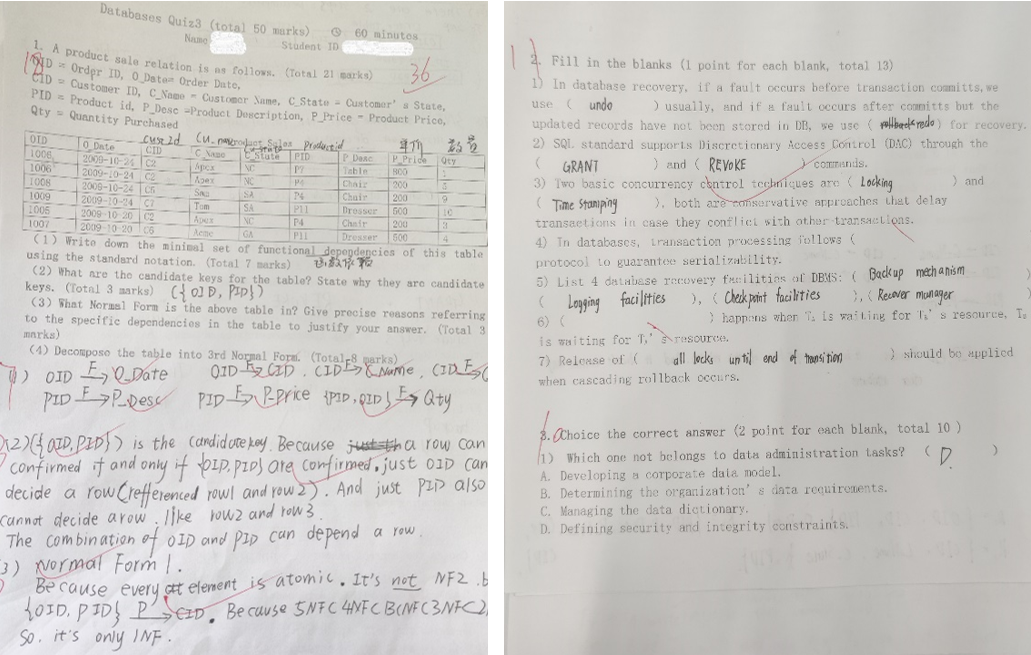 Databases Quiz3 (total 50 marks) 60 minutes
Name Student ID
1. A product sale relation is as follows. (Total 21 marks)
36
OID = Order ID, O_Date= Order Date,
CID = Customer ID, C_Name = Customer Name, C_State = Customer's State,
PID = Product id, P_Desc =Product Description, P_Price = Product Price,
Qty = Quantity Purchased
Product Sales
OID O_Date CID C_Name C_State PID P_Desc P_Price Qty
1006 2009-10-24 C2 Apex NC P7 Table 800
1006 2009-10-24 C2 Apex NC P4 Chair 200
1008 2009-10-24 C6 SA P4 Chair 200
1009 2009-10-24 C7 Tom SA P11 Dresser 500 10
1005 2009-10-20 C2 Apex NC P4 Chair 200
1007 2009-10-20 C6 Acme GA P11 Dresser 500 4
(1) Write down the minimal set of functional dependencies of this table
using the standard notation. (Total 7 marks)
(2) What are the candidate keys for the table? State why they are candidate
keys. (Total 3 marks) ({OID, PID})
(3) What Normal Form is the above table in? Give precise reasons referring
to the specific dependencies in the table to justify your answer. (Total 3
marks)
(4) Decompose the table into 3rd Normal Form. (Total 8 marks)
1) OID F→ O_Date OID F→ CID. CID F→ C_Name, CID F→
PID F→ P_Desc PID F→ P-Price {PID, OID} F→ Qty
(2) ({OID, PID}) is the candidate key. Because a row can
confirmed if and only if {OID, PID} are confirmed. just OID can
decide a row (refferenced row1 and row2). And just PID also
cannot decide a row, like row2 and row3.
The combination of OID and PID can depend a row.
3) Normal Form 1.
Because every element is atomic. It's not NF2.
{OID, PID} P→ CID. Because 5NF⊂4NF⊂BCNF⊂3NF⊂2
So. it's only 1NF.
2. Fill in the blanks (1 point for each blank, total 13)
1) In database recovery, if a fault occurs before transaction commits, we
use ( undo ) usually, and if a fault occurs after commits but the
updated records have not been stored in DB, we use ( redo ) for recovery.
2) SQL standard supports Discretionary Access Control (DAC) through the
( GRANT ) and ( REVOKE ) commands.
3) Two basic concurrency control techniques are ( Locking ) and
( Time Stamping ), both are conservative approaches that delay
transactions in case they conflict with other transactions.
4) In databases, transaction processing follows (
protocol to guarantee serializability.
5) List 4 database recovery facilities of DBMS: ( Backup mechanism
( Logging facilities ), ( Checkpoint facilities ), ( Recover manager
6) ( ) happens when T₁ is waiting for T₂'s resource, T₂
is waiting for T₁'s resource.
7) Release of ( all locks until end of transition ) should be applied
when cascading rollback occurs.
3. Choice the correct answer (2 point for each blank, total 10 )
1) Which one not belongs to data administration tasks? ( D )
A. Developing a corporate data model.
B. Determining the organization's data requirements.
C. Managing the data dictionary.
D. Defining security and integrity constraints.